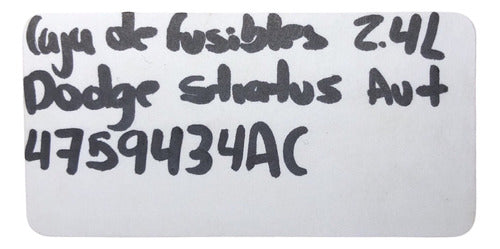 Caja de fusibles 2.4L
Dodge stratus Aut
4759434AC